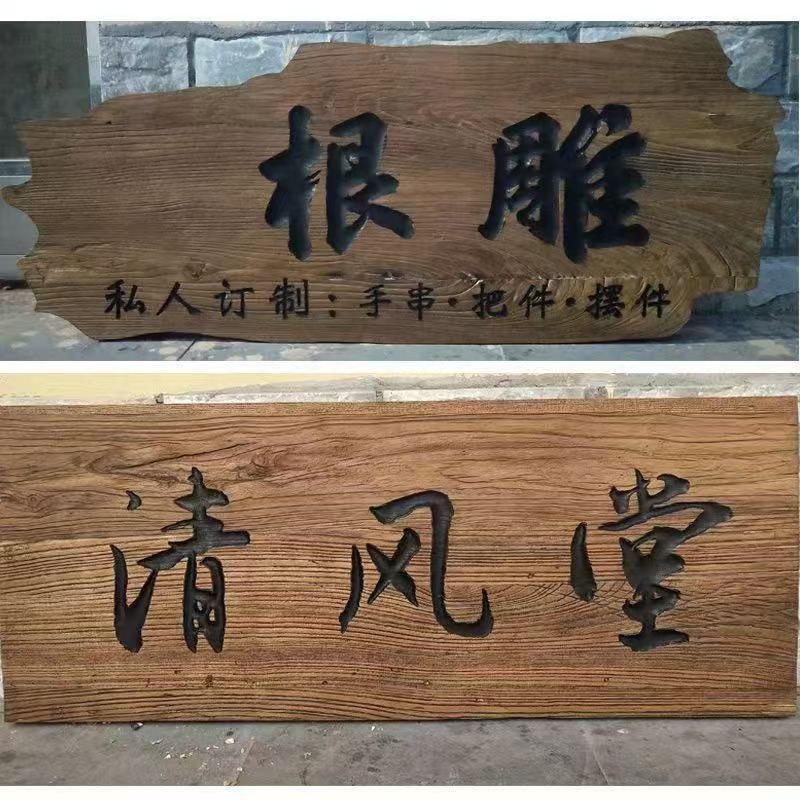 根雕
私人订制：手串·把件·摆件
清风堂